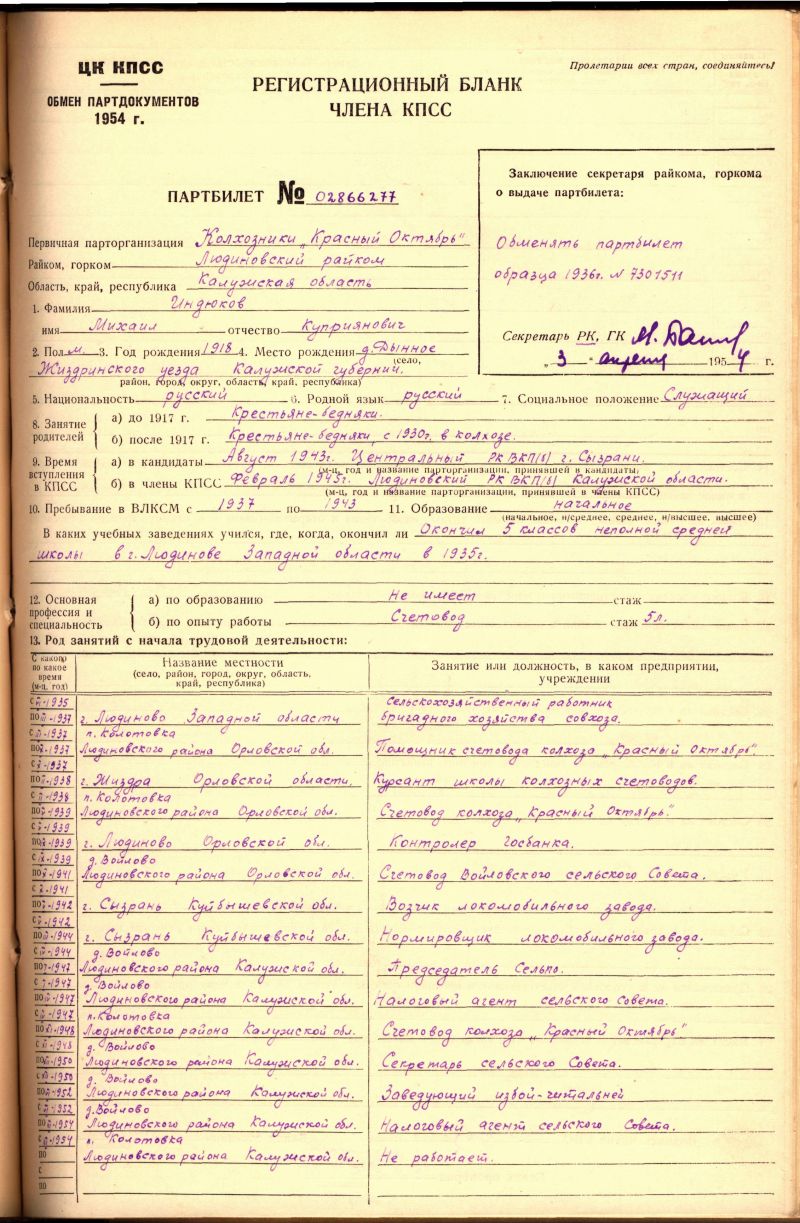 ЦК КПСС
ОБМЕН ПАРТДОКУМЕНТОВ
1954 г.
Пролетарии всех стран, соединяйтесь!
РЕГИСТРАЦИОННЫЙ БЛАНК
ЧЛЕНА КПСС
ПАРТБИЛЕТ № 02866277
Заключение секретаря райкома, горкома
о выдаче партбилета:
Обменять партбилет
образца 1936г. N 7301511
Секретарь РК, ГК
„3" апреля 1954 г.
Первичная парторганизация Колхозники „Красный Октябрь"
Райком, горком Людиновский райком
Область, край, республика Калужская область
1. Фамилия Индюков
имя Михаил отчество Куприянович
2. Пол м 3. Год рождения 1918 4. Место рождения д. Дынное
(село,
Жиздринского уезда Калужской губернии.
район, город, округ, область, край, республика)
5. Национальность русский 6. Родной язык русский 7. Социальное положение Служащий
8. Занятие родителей а) до 1917 г. Крестьяне-бедняки.
б) после 1917 г. Крестьяне-бедняки, с 1930г. в колхозе.
9. Время вступления в КПСС а) в кандидаты Август 1943г. Центральный РК ВКП/б/ г. Сызрани.
(м-ц, год и название парторганизации, принявшей в кандидаты)
б) в члены КПСС Февраль 1945г. Людиновский РК ВКП/б/ Калужской области.
(м-ц, год и название парторганизации, принявшей в члены КПСС)
10. Пребывание в ВЛКСМ с 1937 по 1943 11. Образование начальное
(начальное, н/среднее, среднее, н/высшее, высшее)
В каких учебных заведениях учился, где, когда, окончил ли Окончил 5 классов неполной средней
школы в г. Людинове Западной области в 1935г.
12. Основная профессия и специальность а) по образованию Не имеет стаж
б) по опыту работы Счетовод стаж 5л.
13. Род занятий с начала трудовой деятельности:
С какого по какое время (м-ц, год)
Название местности
(село, район, город, округ, область, край, республика)
Занятие или должность, в каком предприятии, учреждении
с 1935
по 1937 г. Людиново Западной области сельскохозяйственный работник бригадного хозяйства совхоза.
с 1937 п. Колотовка
по 1937 Людиновского района Орловской обл. Помощник счетовода колхоза „Красный Октябрь"
с 1937
по 1938 г. Жиздра Орловской области. Курсант школы колхозных счетоводов.
с 1938 п. Колотовка
по 1939 Людиновского района Орловской обл. Счетовод колхоза „Красный Октябрь".
с 1939
по 1939 г. Людиново Орловской обл. Контролер Госбанка.
с 1939 д. Войлово
по 1941 Людиновского района Орловской обл. Счетовод Войловского сельского Совета.
с 1941
по 1942 г. Сызрань Куйбышевской обл. Возчик локомобильного завода.
с 1942
по 1944 г. Сызрань Куйбышевской обл. Нормировщик локомобильного завода.
с 1944 д. Войлово
по 1947 Людиновского района Калужской обл. Председатель Сельпо.
с 1947 д. Войлово
по 1947 Людиновского района Калужской обл. Налоговый агент сельского Совета.
с 1947 п. Колотовка
по 1948 Людиновского района Калужской обл. Счетовод колхоза „Красный Октябрь"
с 1948 д. Войлово
по 1950 Людиновского района Калужской обл. Секретарь сельского Совета.
с 1950 д. Войлово
по 1952 Людиновского района Калужской обл. Заведующий избой-читальней
с 1952 д. Войлово
по 1954 Людиновского района Калужской обл. Налоговый агент сельского Совета.
с 1954 п. Колотовка
по Людиновского района Калужской обл. Не работает.
с
по